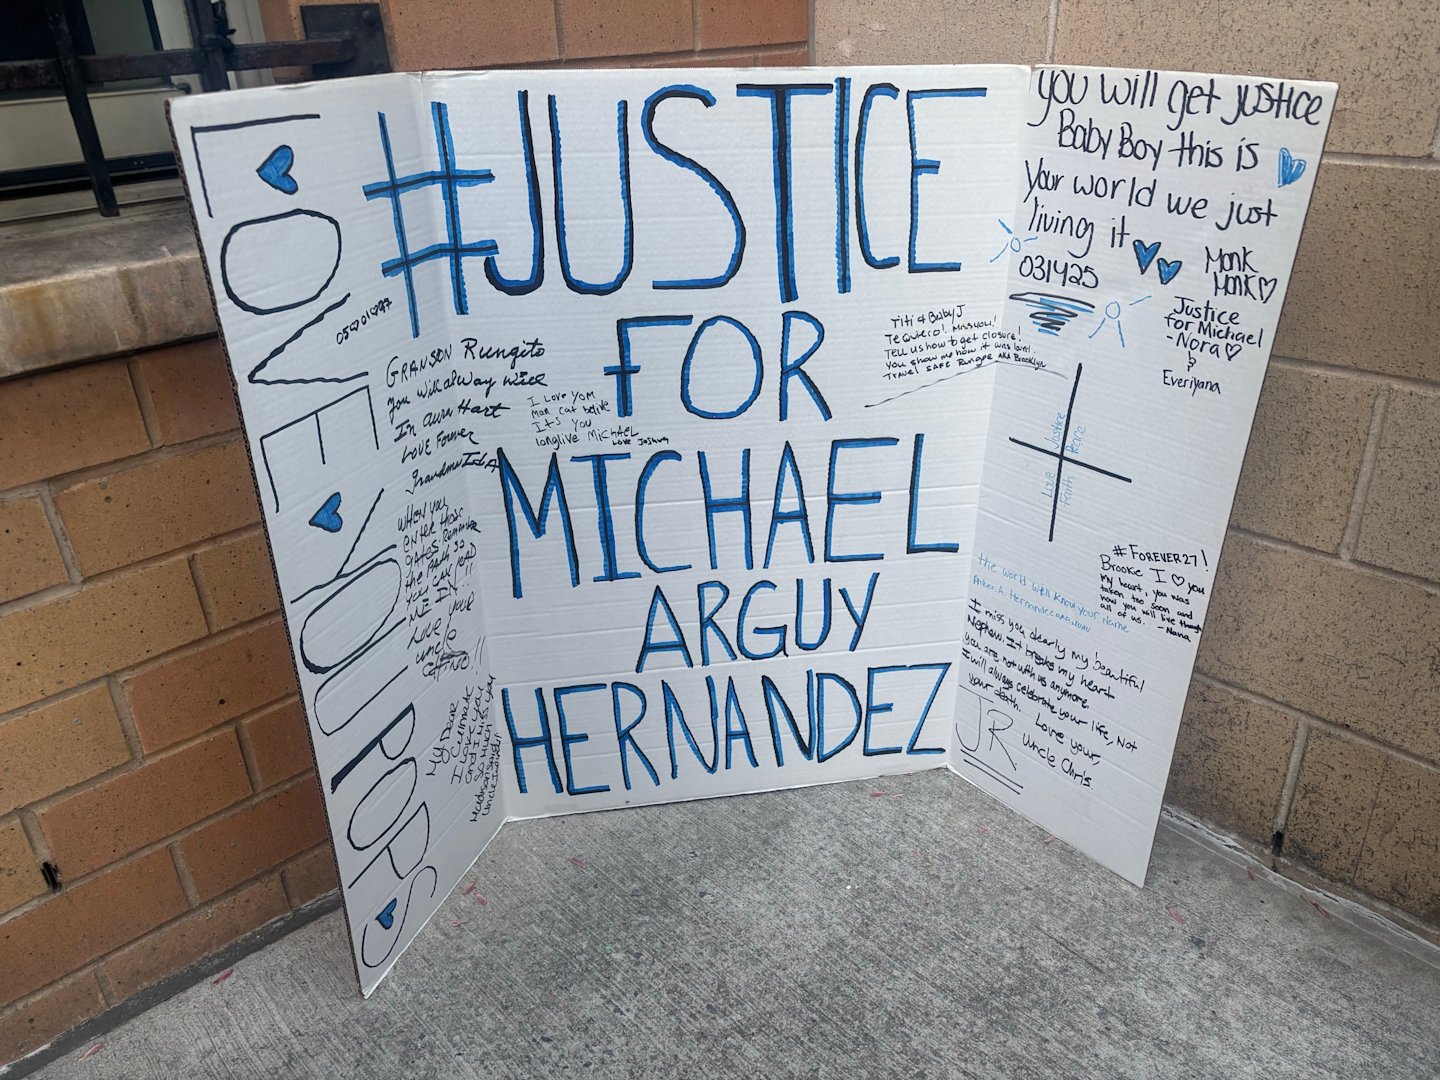 LOVE YOU POPS
05♡01♡97
#JUSTICE
FOR
MICHAEL
ARGUY
HERNANDEZ
GRANSON Rungito
You will alway
In Hart
Love Forever
Grandma
I Love YOM
Man cat belive
Its You
longlive MicHAEL
Love Joshua
WHEN YOU
ENTER those
GATES. Remember
the PATH so
YOU CAN LEAD
ME IN!!!
LOVE YOUR
uncle
My Dear
I Love You
and I will
SO Much Miss you
Titi & BabyJ
Te quiero! Miss you!
Tell us how to get closure!
You show me how it was love!
Travel SAFE Rungee AKA Brooklyn
You will get justice
Baby Boy this is
Your world we just
living it
031425
Monk
Monk♡
Justice
for Michael
-Nora♡
&
Everiyana
Justice
Peace
Love
Faith
#FOREVER27!
Brookie I ♡ you
my heart, you was
taken too soon and
now you will live through
all of us. -Nana
the world will know your name
I miss you dearly my beautiful
Nephew. It breaks my heart
you are not with us anymore.
I will always celebrate your life, Not
your death.
Love your,
Uncle Chris.
JR